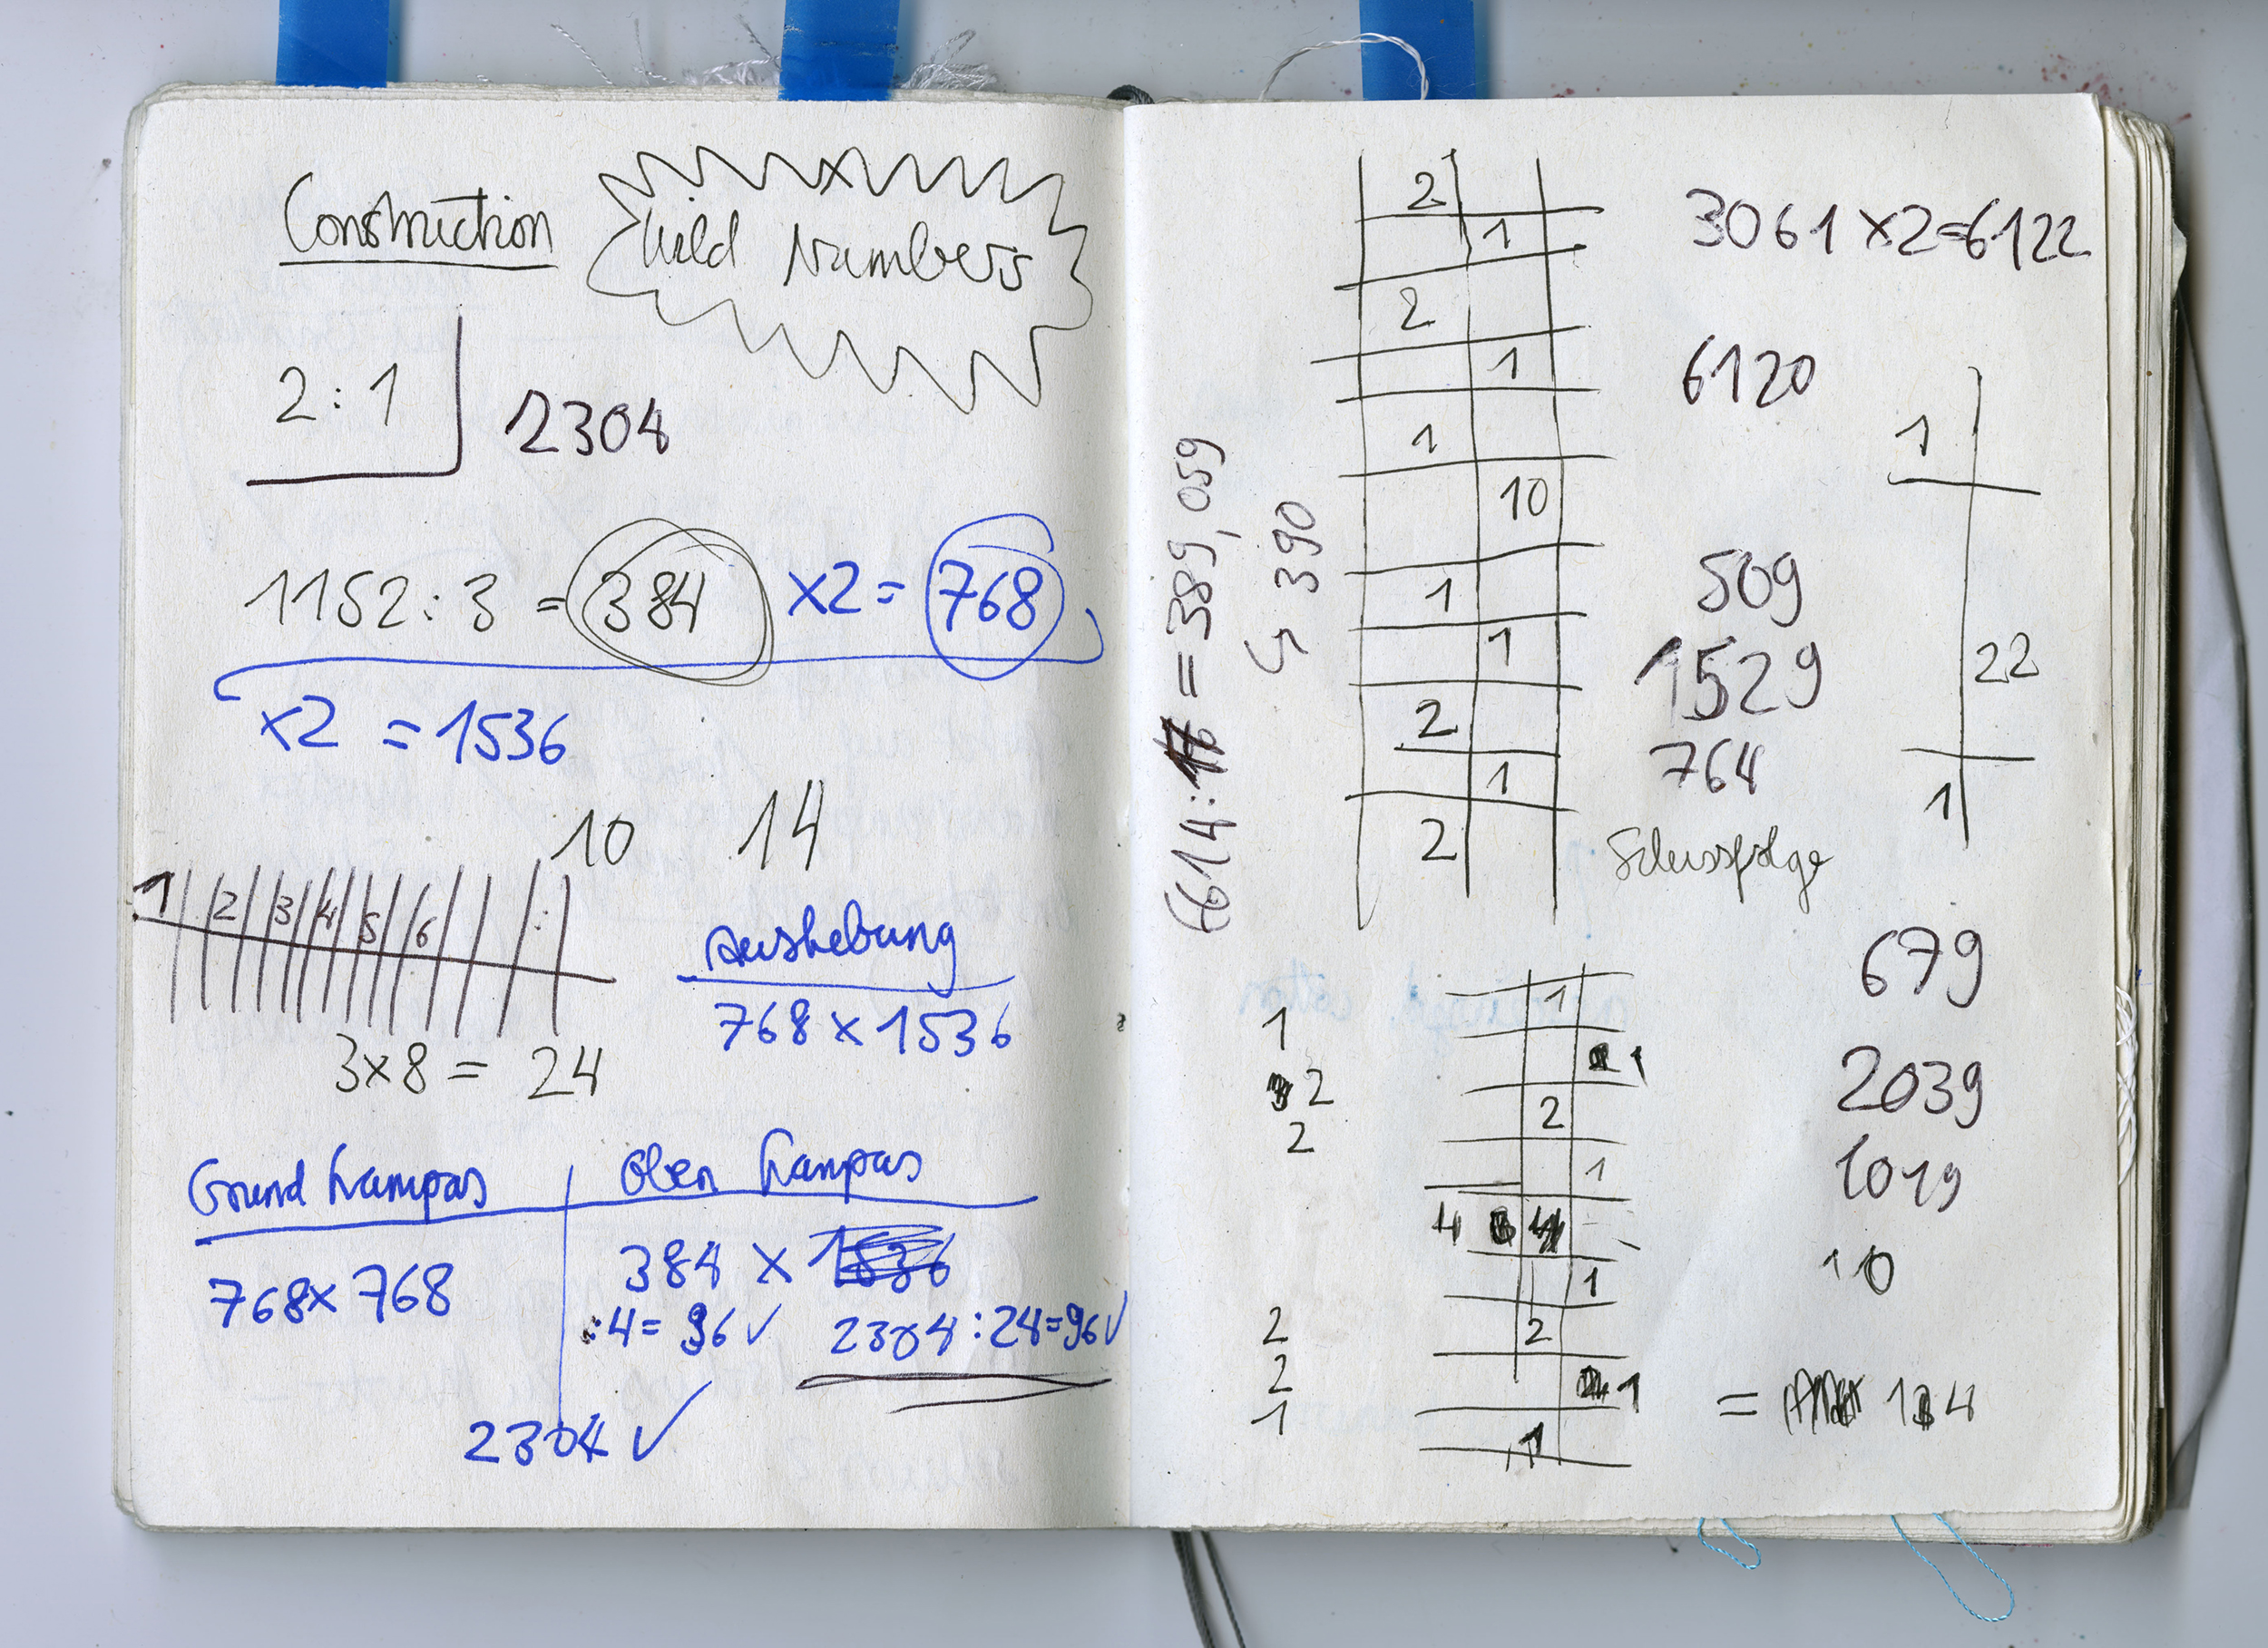 Construction
Wild Numbers
2:1
2304
1152:3 = 384 ×2= 768
×2 = 1536
10 14
1 2 3 4 5 6
3×8 = 24
Aushebung
768 × 1536
Grund Lampas
Oben Lampas
768× 768
384 × 1536
:4= 96 ✓ 2304:24=96 ✓
2304 ✓
6614:17 = 389,059
↳ 390
2
1
2
1
1
10
1
1
2
1
2
3061 ×2=6122
6120
509
1529
764
Schussfolge
1
22
1
1
2
2
2
2
1
1
1
2
1
4
1
2
1
1
679
2039
1019
10
= 14